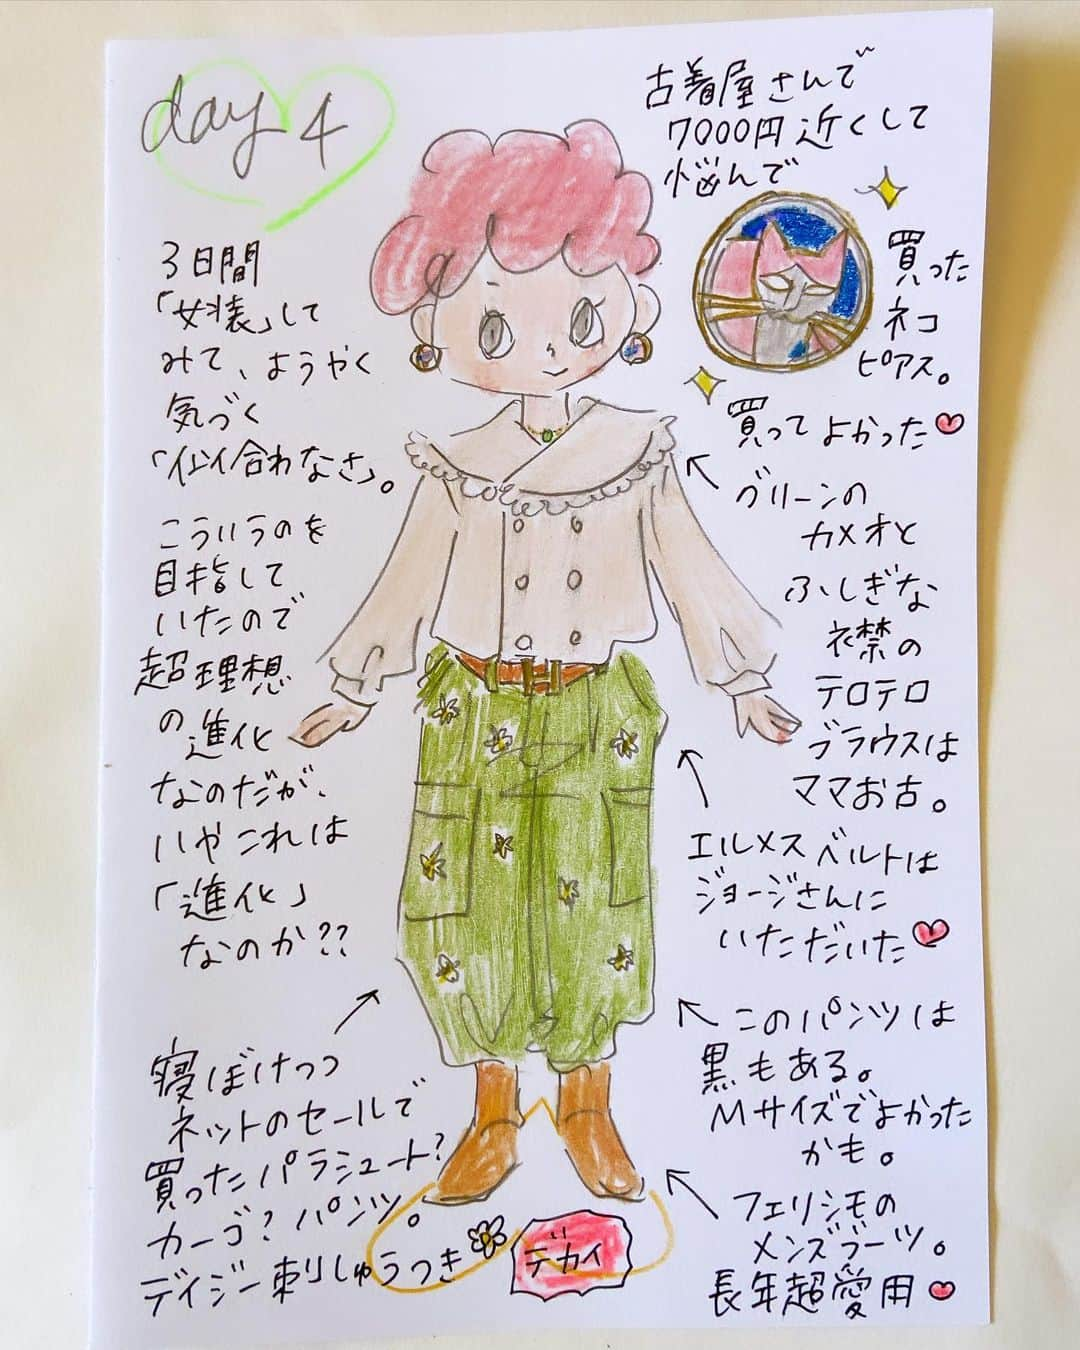 day 4
3日間
「女装」して
みて、ようやく
気づく
「似合わなさ」。
こういうのを
目指して
いたので
超理想
の進化
なのだが、
いやこれは
「進化」
なのか??
寝ぼけつつ
ネットのセールで
買ったパラシュート?
カーゴ?パンツ。
デイジー刺しゅうつき
デカイ
古着屋さんで
7000円近くして
悩んで
買った
ネコ
ピアス。
買ってよかった
グリーンの
カメオと
ふしぎな
襟の
テロテロ
ブラウスは
ママお古。
エルメスベルトは
ジョージさんに
いただいた
このパンツは
黒もある。
Mサイズでよかった
かも。
フェリシモの
メンズブーツ。
長年超愛用